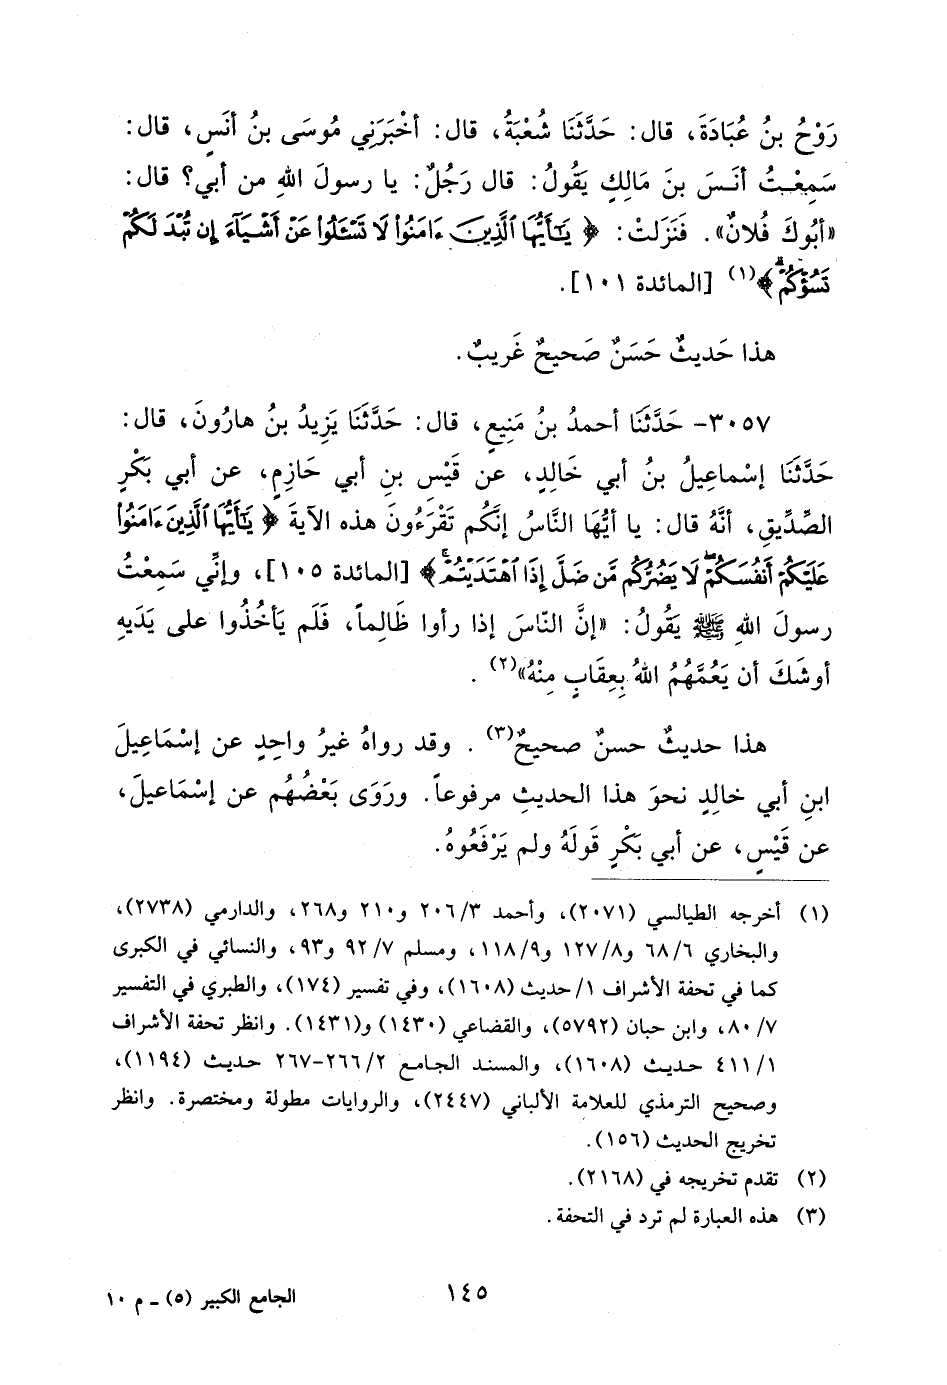 رَوْحُ بنُ عُبَادَةَ، قال: حَدَّثَنَا شُعْبَةُ، قال: أخْبَرَنِي مُوسَى بنُ أنَسٍ، قال:
سَمِعْتُ أنَسَ بنَ مَالِكٍ يَقُولُ: قال رَجُلٌ: يا رسولَ اللهِ من أبي؟ قال:
«أبُوكَ فُلانٌ». فَنَزَلَتْ: ﴿ يَٰٓأَيُّهَا ٱلَّذِينَ ءَامَنُوا۟ لَا تَسْـَٔلُوا۟ عَنْ أَشْيَآءَ إِن تُبْدَ لَكُمْ
تَسُؤْكُمْ ﴾(١) [المائدة ١٠١].
هذا حَديثٌ حَسَنٌ صَحيحٌ غَريبٌ.
٣٠٥٧- حَدَّثَنَا أحمدُ بنُ مَنِيعٍ، قال: حَدَّثَنَا يَزِيدُ بنُ هارُونَ، قال:
حَدَّثَنَا إسْماعِيلُ بنُ أبي خَالِدٍ، عن قَيْسِ بنِ أبي حَازِمٍ، عن أبي بَكْرٍ
الصِّدِّيقِ، أنَّهُ قال: يا أيُّهَا النَّاسُ إنَّكُم تَقْرَءُونَ هذه الآيةَ ﴿ يَٰٓأَيُّهَا ٱلَّذِينَ ءَامَنُوا۟
عَلَيْكُمْ أَنفُسَكُمْ ۖ لَا يَضُرُّكُم مَّن ضَلَّ إِذَا ٱهْتَدَيْتُمْ ۚ﴾ [المائدة ١٠٥]، وإنِّي سَمِعْتُ
رسولَ اللهِ ﷺ يَقُولُ: «إنَّ النَّاسَ إذا رأوا ظَالِماً، فَلَم يَأخُذُوا على يَدَيهِ
أوشَكَ أن يَعُمَّهُمُ اللهُ بِعِقَابٍ مِنْهُ»(٢) .
هذا حديثٌ حسنٌ صحيحٌ(٣) . وقد رواهُ غيرُ واحِدٍ عن إسْمَاعِيلَ
ابنِ أبي خالِدٍ نحوَ هذا الحديثِ مرفوعاً. ورَوَى بَعْضُهُم عن إسْمَاعيلَ،
عن قَيْسٍ، عن أبي بَكْرٍ قَولَهُ ولم يَرْفَعُوهُ.
(١) أخرجه الطيالسي (٢٠٧١)، وأحمد ٣/ ٢٠٦ و٢١٠ و٢٦٨، والدارمي (٢٧٣٨)،
والبخاري ٦/ ٦٨ و٨/ ١٢٧ و٩/ ١١٨، ومسلم ٧/ ٩٢ و٩٣، والنسائي في الكبرى
كما في تحفة الأشراف ١/ حديث (١٦٠٨)، وفي تفسير (١٧٤)، والطبري في التفسير
٧/ ٨٠، وابن حبان (٥٧٩٢)، والقضاعي (١٤٣٠) و(١٤٣١). وانظر تحفة الأشراف
١/ ٤١١ حديث (١٦٠٨)، والمسند الجامع ٢/ ٢٦٦-٢٦٧ حديث (١١٩٤)،
وصحيح الترمذي للعلامة الألباني (٢٤٤٧)، والروايات مطولة ومختصرة. وانظر
تخريج الحديث (١٥٦).
(٢) تقدم تخريجه في (٢١٦٨).
(٣) هذه العبارة لم ترد في التحفة.
١٤٥
الجامع الكبير (٥) ـ م ١٠